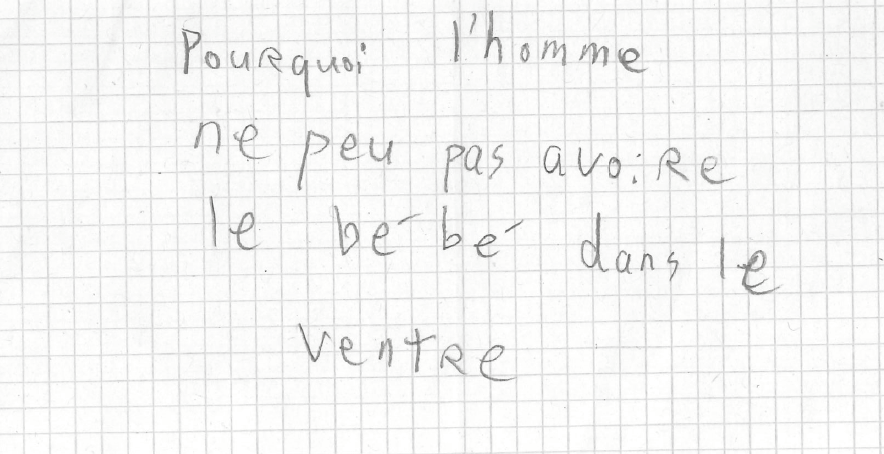 Pourquoi l'homme
ne peu pas avoire
le bébé dans le
ventre